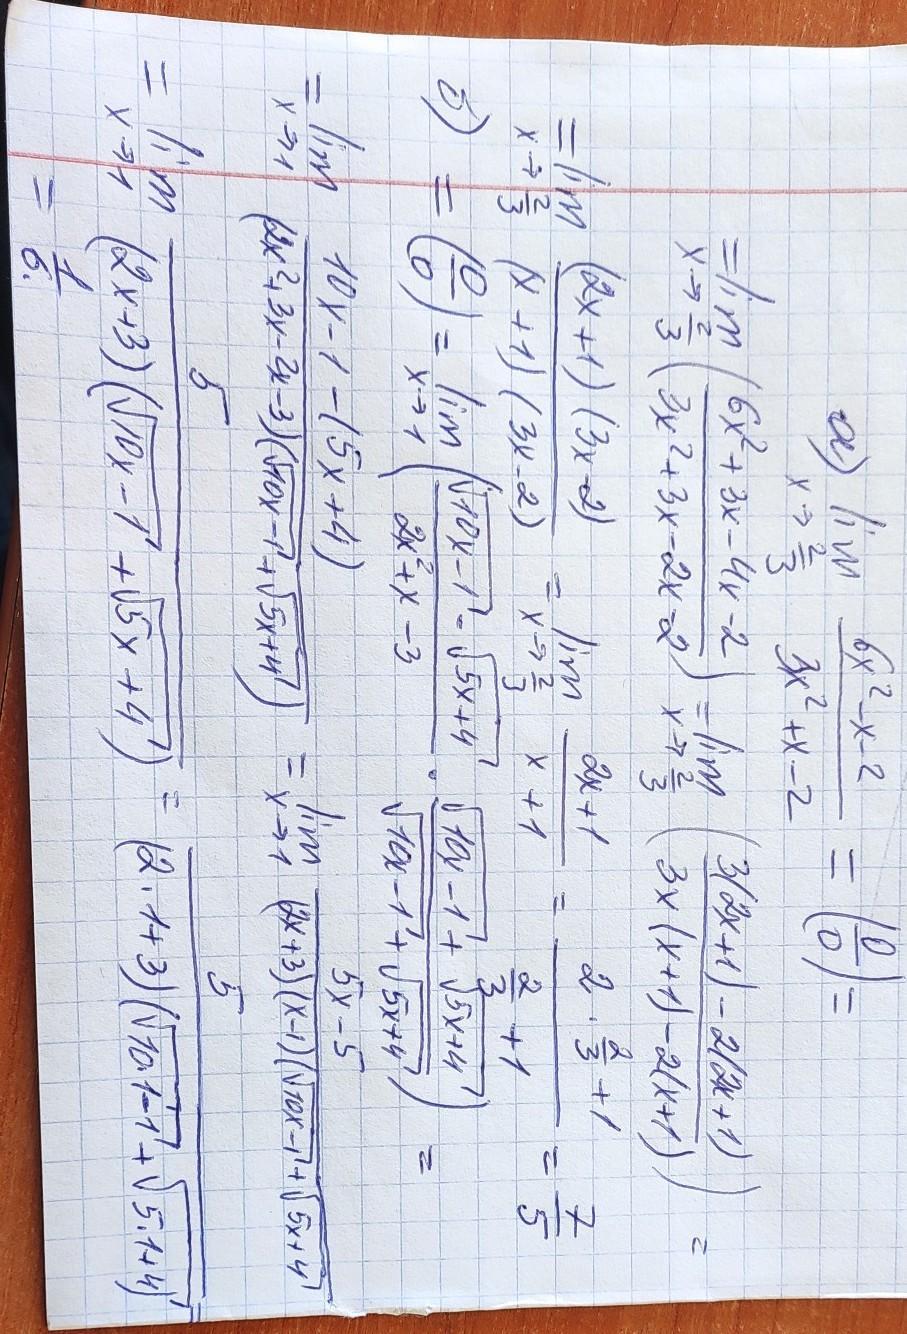 а) lim x→2/3 (6x²-x-2)/(3x²+x-2) = (0/0) =
= lim x→2/3 ((6x²+3x-4x-2)/(3x²+3x-2x-2)) = lim x→2/3 ((3(2x+1)-2(2x+1))/(3x(x+1)-2(x+1))) =
= lim x→2/3 ((2x+1)(3x-2))/((x+1)(3x-2)) = lim x→2/3 (2x+1)/(x+1) = (2·2/3+1)/(2/3+1) = 7/5
б) = (0/0) = lim x→1 ((√(10x-1) - √(5x+4))/(2x²+x-3) · (√(10x-1)+√(5x+4))/(√(10x-1)+√(5x+4))) =
= lim x→1 (10x-1-(5x+4))/((2x²+3x-2x-3)(√(10x-1)+√(5x+4))) = lim x→1 (5x-5)/((2x+3)(x-1)(√(10x-1)+√(5x+4)))
= lim x→1 5/((2x+3)(√(10x-1)+√(5x+4))) = 5/((2·1+3)(√(10·1-1)+√(5·1+4))) =
= 1/6.